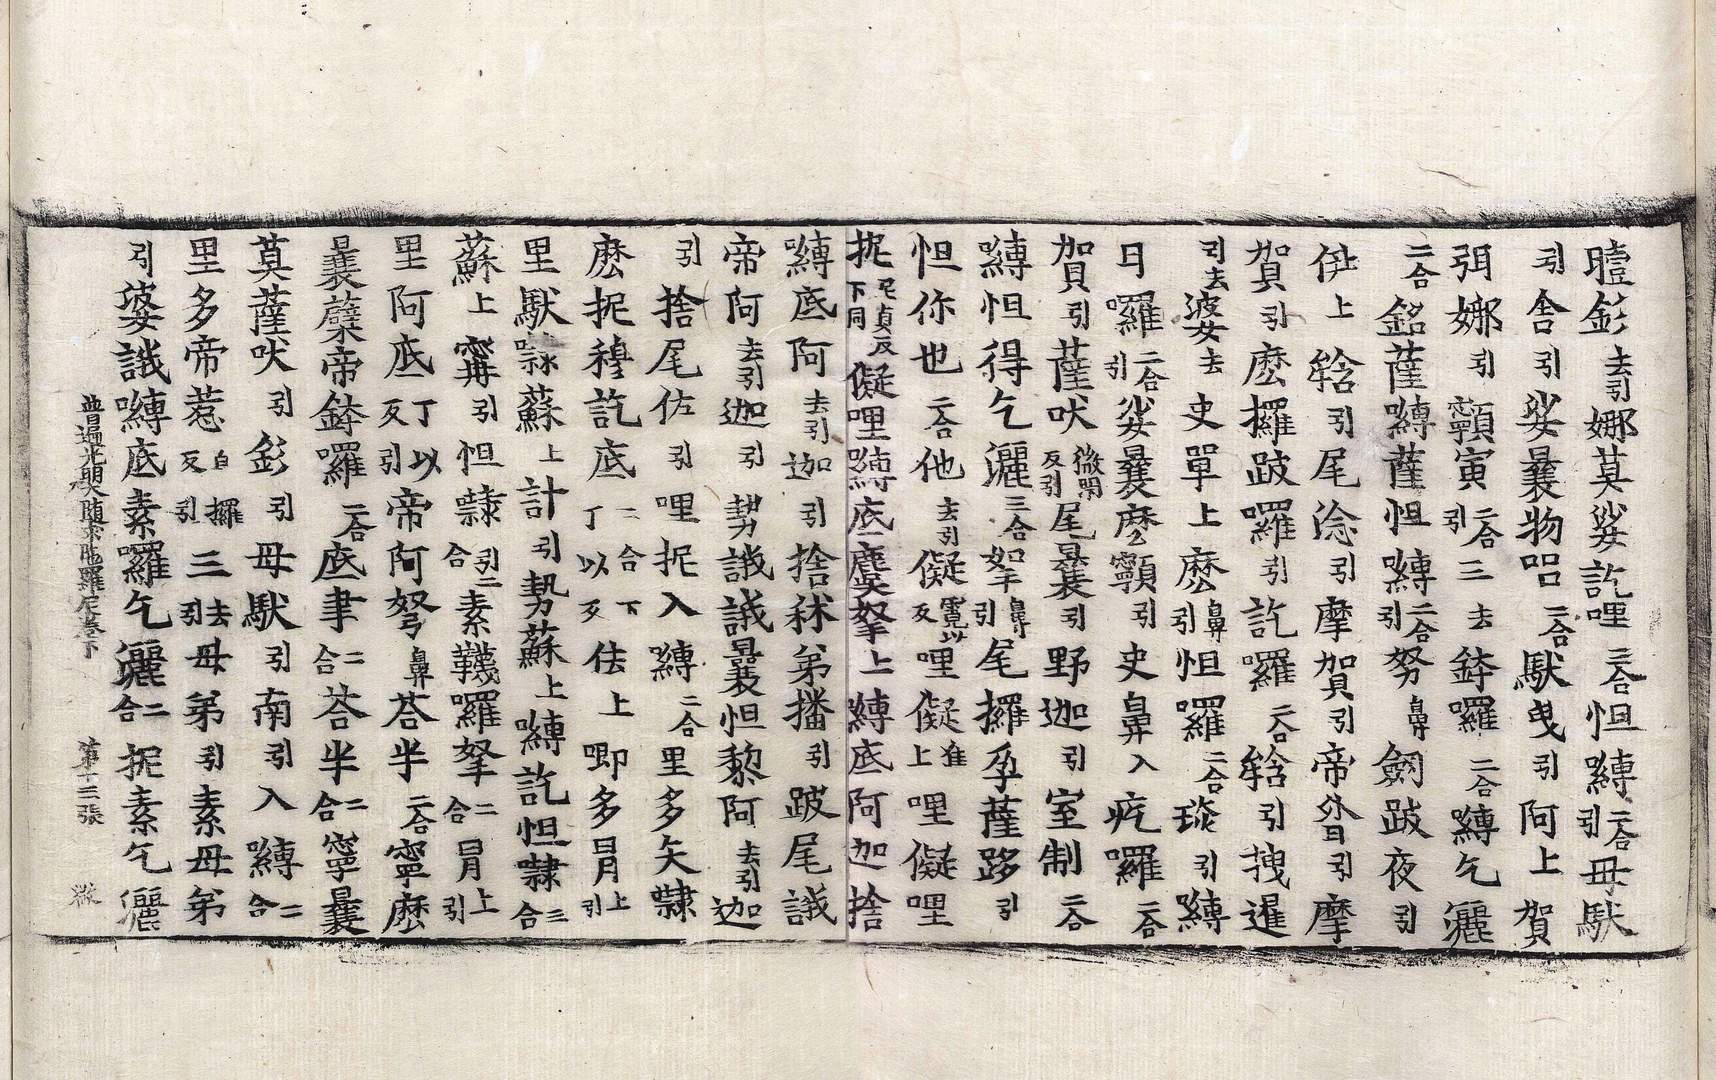 曀釤去引娜莫娑訖哩二合怛嚩二合引毋馱
引舍引娑曩物㗚二合馱曳引阿上賀
弭娜引顙寅二合引三去鉢囉二合嚩乞灑
二合銘薩嚩薩怛嚩二合引努鼻劒跛夜引
伊上𤚥引尾淰引摩賀引帝𭉨引摩
賀引麽攞跛囉引訖囉二合𤚥引拽暹
引去婆去史單上麽鼻引怛囉二合琰引嚩
日囉二合引娑曩麽顙引史鼻入疙囉二合
賀引薩吠微閉反引尾曩引野迦引室制二合
嚩怛得乞灑三合拏鼻引尾攞孕薩跢引
怛你也二合他去引儗霓以反哩儗准上哩儗哩
抳尼貞反下同儗哩嚩底麌拏上嚩底阿迦捨
嚩底阿去引迦引捨秫弟播引跛尾誐
帝阿去引迦引勢誐誐曩怛黎阿去引迦
引捨尾佐引哩抳入嚩二合里多矢隸
麽抳穆訖底二合下丁以反佉上唧多冐上引
里馱隸蘇上計引勢蘇上嚩訖怛隸三合
蘇上寗引怛隸引二合素韈囉拏二合冐上引
里阿底丁以反引帝阿弩鼻荅半二合寧麽
曩蘖帝鉢囉二合底聿二合荅半二合寧曩
莫薩吠引釤引毋馱引南引入嚩二合
里多帝惹自攞反引三去引毋弟引素毋弟
引婆誐嚩底素囉乞灑二合抳素乞灑
普遍光明隨求陁羅尼卷下　第十三張　微